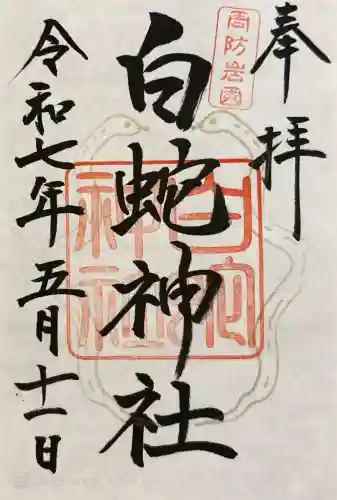 奉拝
周防岩国
白蛇神社
白蛇神社
令和七年五月十一日